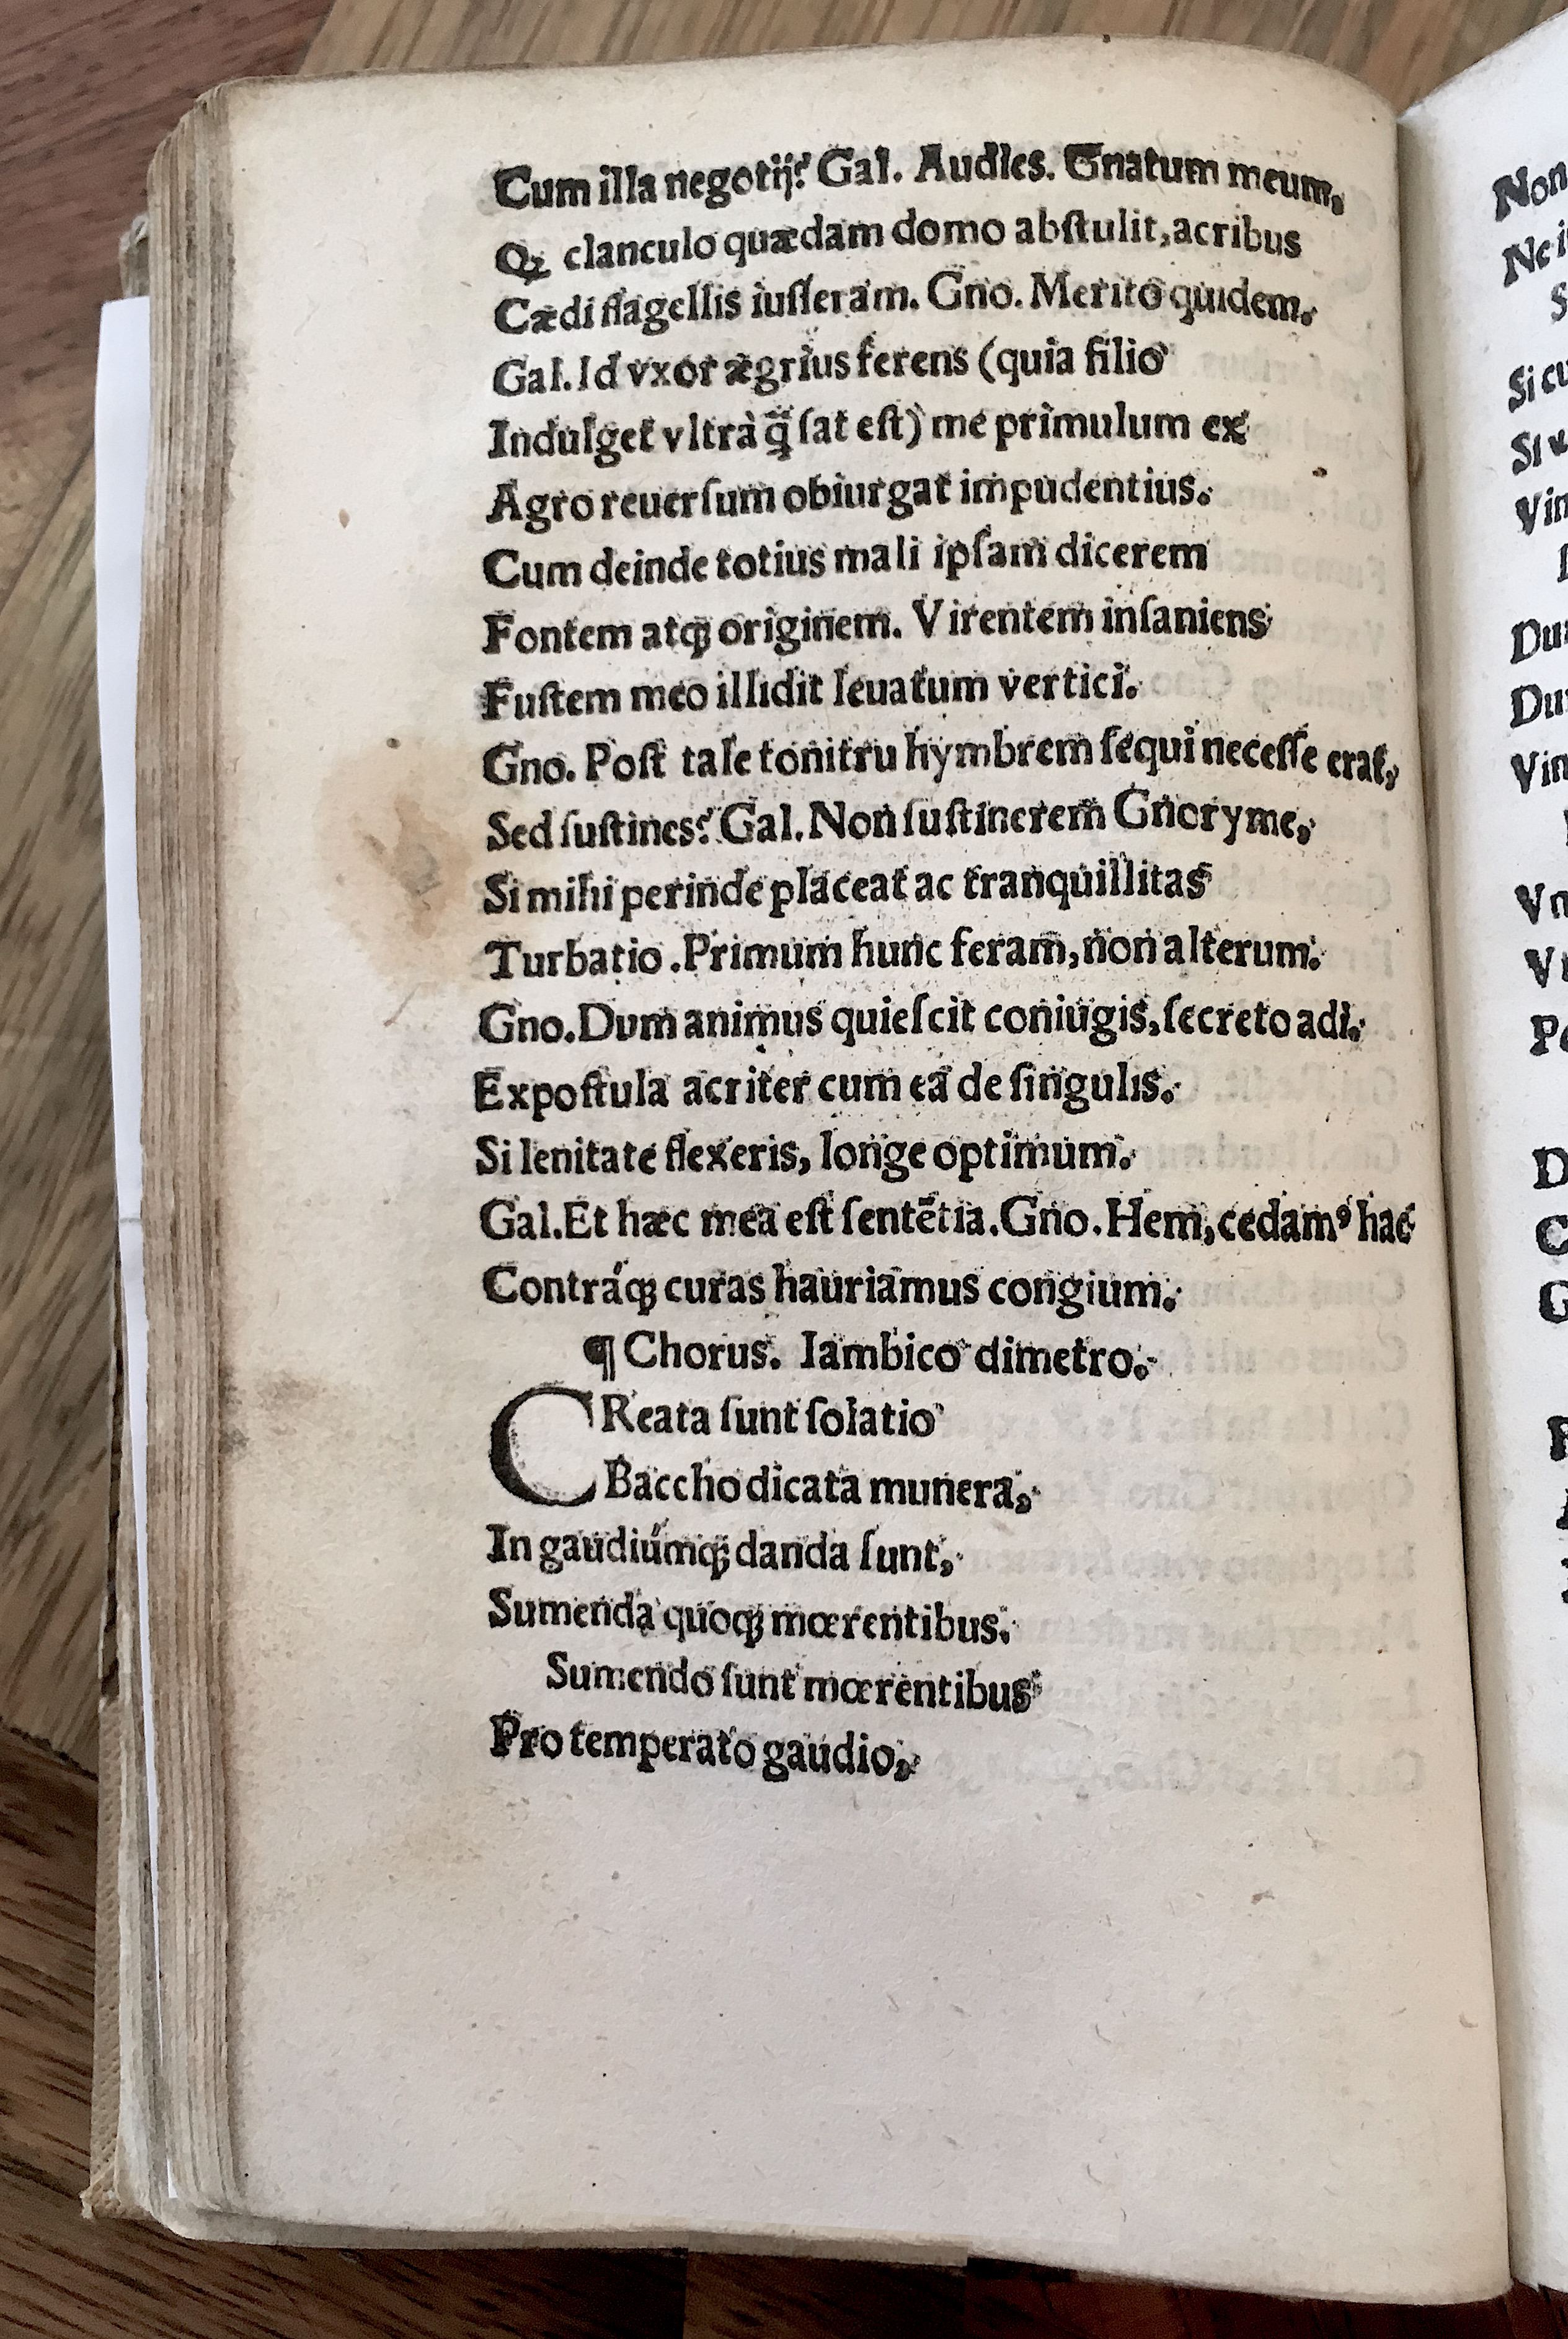 Cum illa negotij? Gal. Audies. Gnatum meum,
Qꝫ clanculo quædam domo abſtulit, acribus
Cædi flagellis iuſſeram. Gno. Merito quidem.
Gal. Id vxor ægrius ferens (quia filio
Indulget vltrà q̃ ſat eſt) me primulum ex
Agro reuerſum obiurgat impudentius.
Cum deinde totius mali ipſam dicerem
Fontem atqꝫ originem. Virentem inſaniens
Fuſtem meo illidit leuatum vertici.
Gno. Poſt tale tonitru hymbrem ſequi neceſſe erat,
Sed ſuſtines? Gal. Non ſuſtinerem Gnoryme,
Si mihi perinde placeat ac tranquillitas
Turbatio. Primum hunc feram, non alterum.
Gno. Dum animus quieſcit coniugis, ſecreto adi.
Expoſtula acriter cum ea de ſingulis.
Si lenitate flexeris, longe optimum.
Gal. Et hæc mea eſt ſentẽtia. Gno. Hem, cedamꝰ hac
Contráqꝫ curas hauriamus congium.
¶ Chorus. Iambico dimetro.
CReata ſunt ſolatio
Baccho dicata munera,
In gaudiúmqꝫ danda ſunt,
Sumenda quoqꝫ mœrentibus.
Sumendo ſunt mœrentibus
Pro temperato gaudio,
Non
Si cu
Vin
Du
Du
Vin